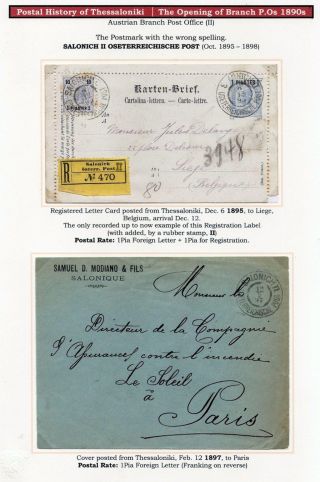 Postal History of Thessaloniki | The Opening of Branch P.Os 1890s
Austrian Branch Post Office (II)
The Postmark with the wrong spelling.
SALONICH II OSETERREICHISCHE POST (Oct. 1895 – 1898)
Karten-Brief.
Cartolina-lettera. — Carte-lettre.
1 PIASTER 1
Monsieur Jules
Liège
Belgique
3948
80
Salonich
R
№ 470
Registered Letter Card posted from Thessaloniki, Dec. 6 1895, to Liege,
Belgium, arrival Dec. 12.
The only recorded up to now example of this Registration Label
(with added, by a rubber stamp, II)
Postal Rate: 1Pia Foreign Letter + 1Pia for Registration.
SAMUEL D. MODIANO & FILS
SALONIQUE
Monsieur le
Directeur de la Compagnie
d'Assurances contre l'incendie
Le Soleil
à
Paris
Cover posted from Thessaloniki, Feb. 12 1897, to Paris
Postal Rate: 1Pia Foreign Letter (Franking on reverse)